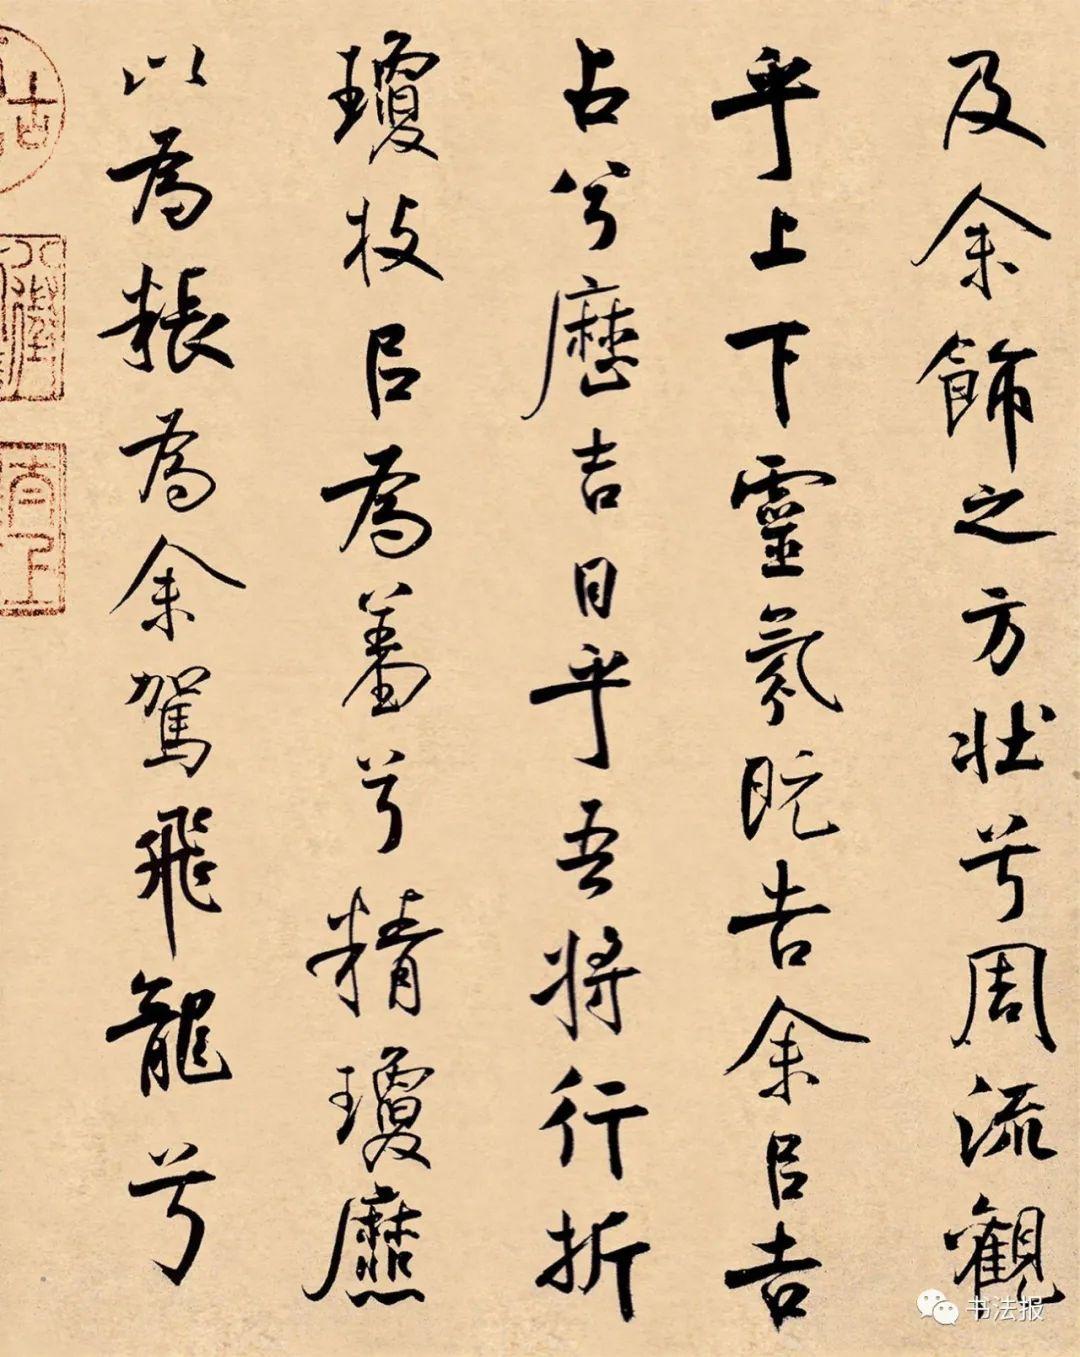 及余飾之方壯兮周流觀
乎上下靈氛既告余㠯吉
占兮歷吉日乎吾將行折
瓊枝㠯為羞兮精瓊爢
以為粻為余駕飛龍兮
书法报